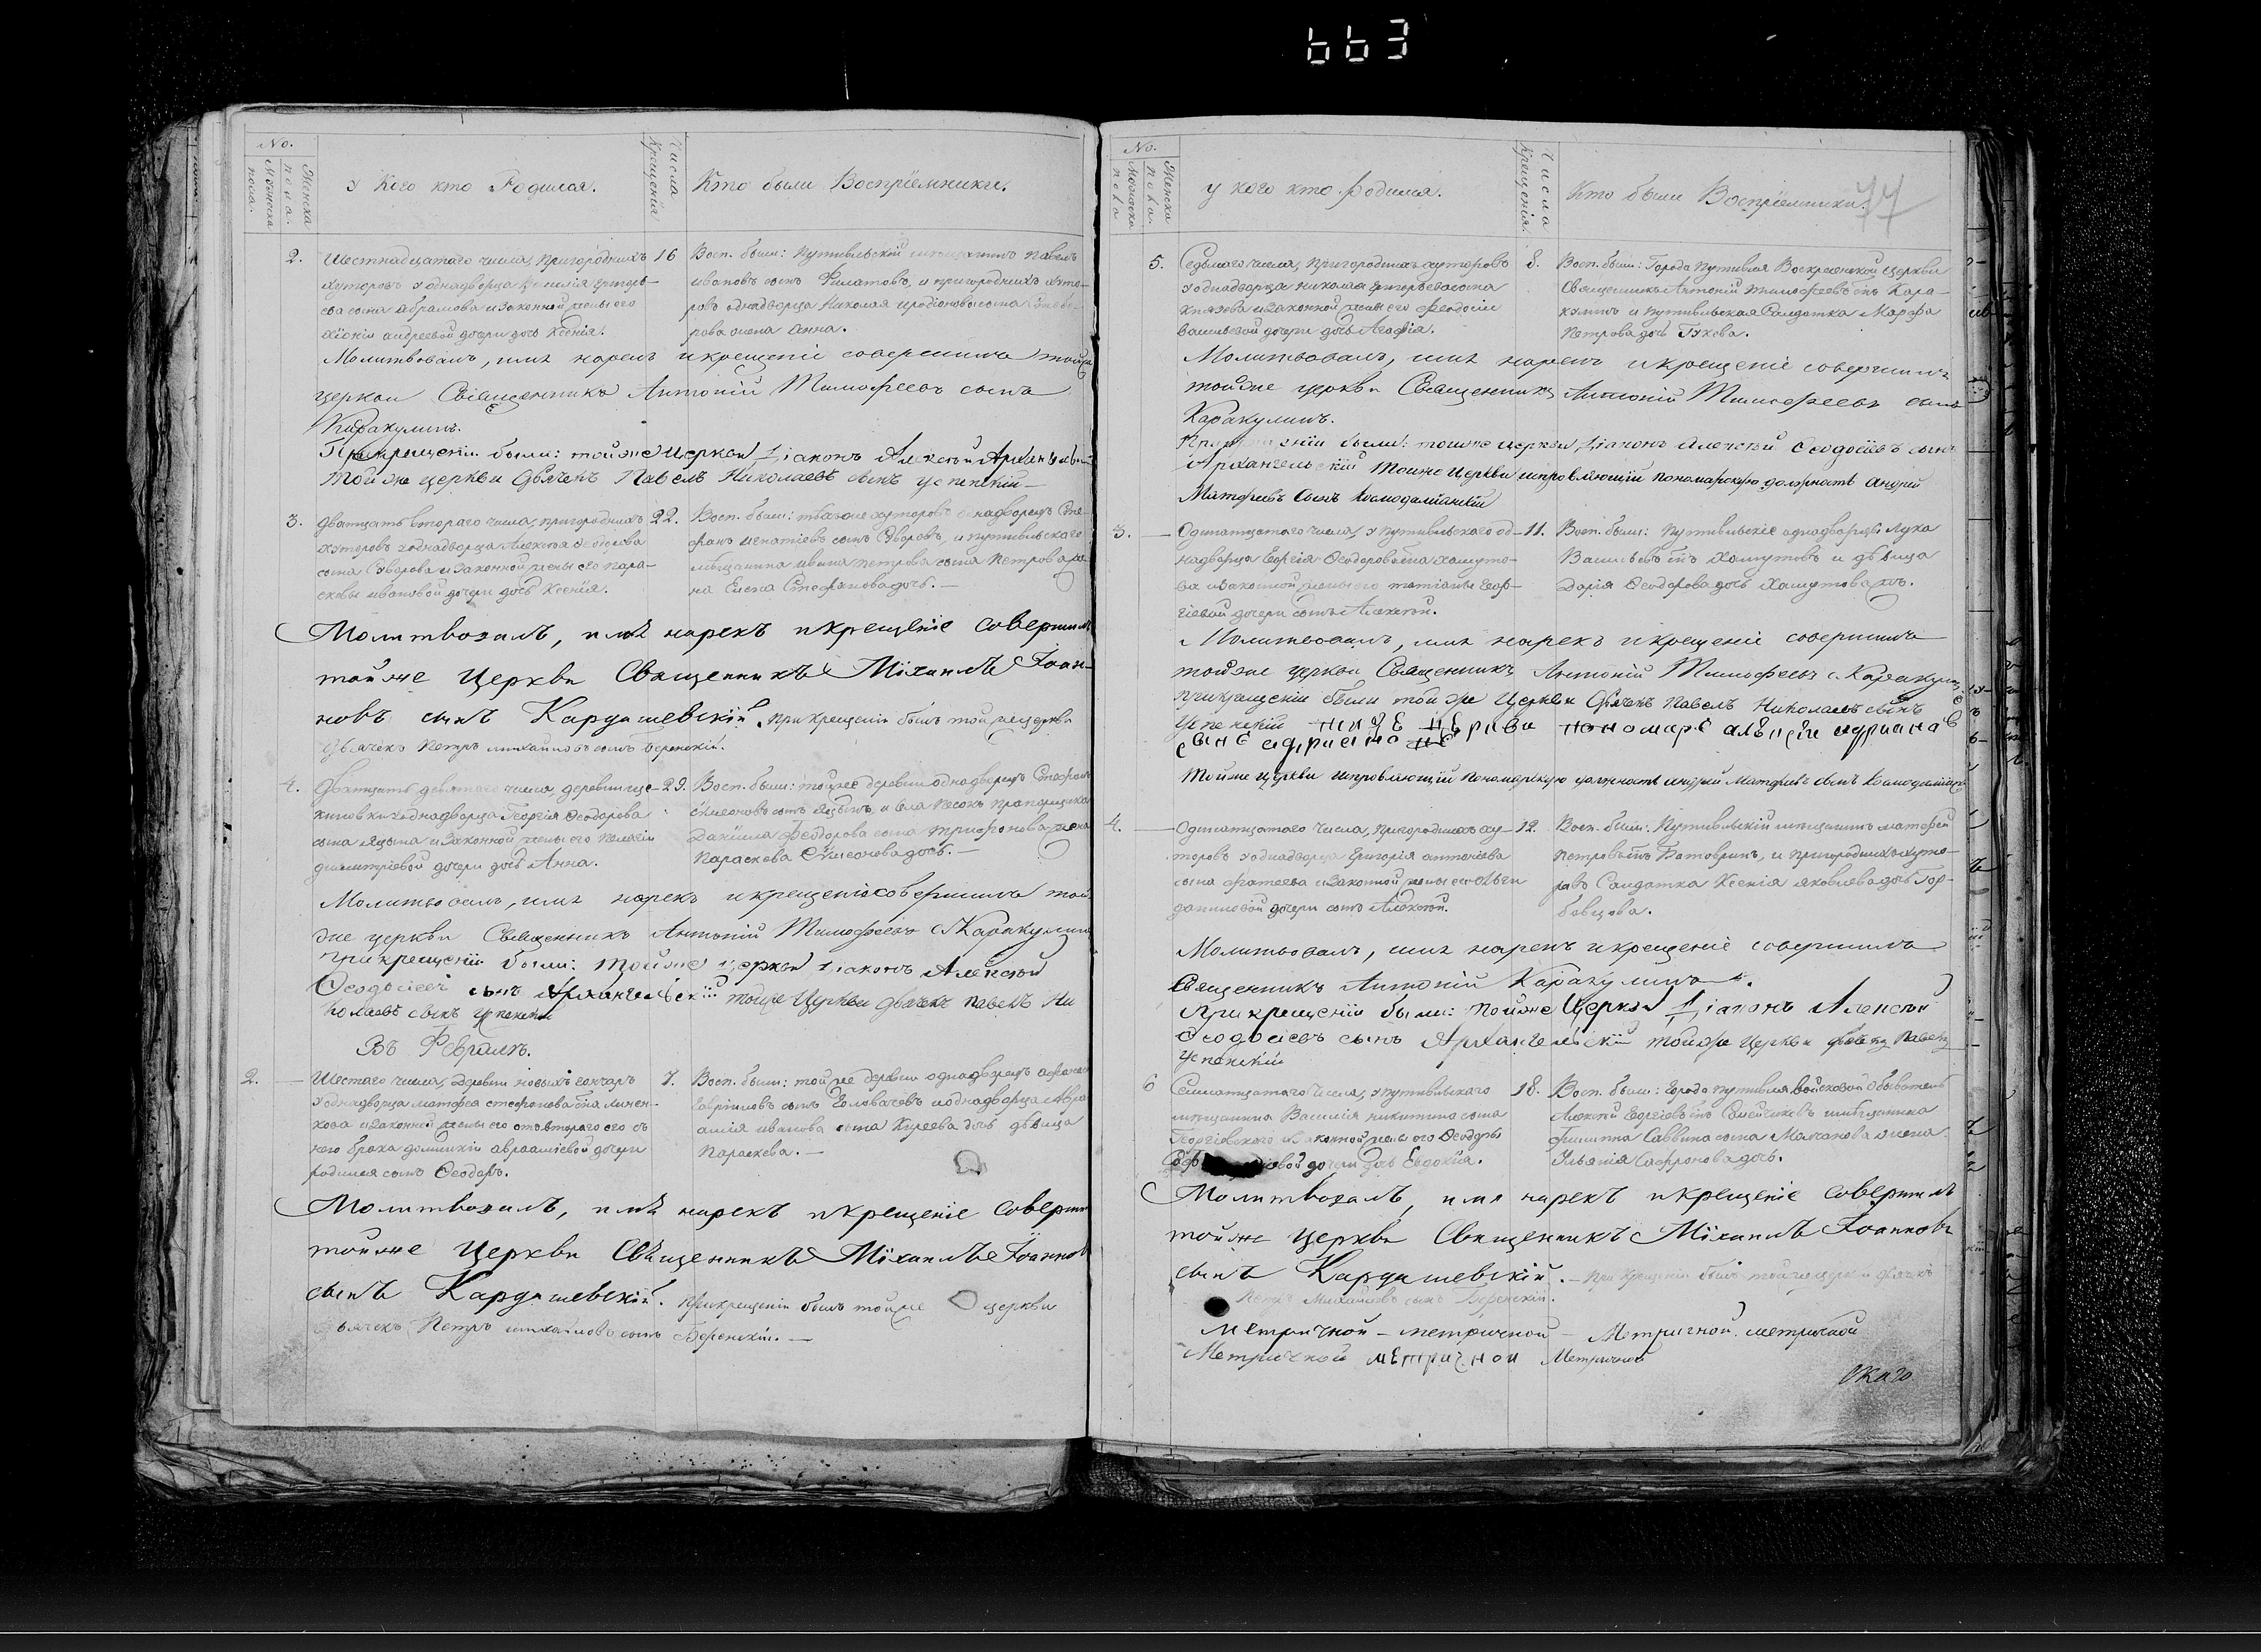 663
No.
Мужеска пола.
Женска пола.
У Кого кто Родился.
Числа Крещенія
Кто были Воспріемники.
2. Шестнадцатаго числа, пригородныхъ
хуторовъ у однадворца Григорь-
ева сына абрамова и законной жены его
андреевой дочери дочь Ксенія.
16
Восп. были: Путивльскій мещанинъ павелъ
ивановъ сынъ Филатовъ, и пригородныхъ хуто-
ровъ однадворца Николая иродіонова сына
жена Анна.
Молитвовалъ, имя нарекъ и крещеніе совершилъ тойже
церкви Священникъ Антоній Тимофеевъ сынъ
Каракулинъ.
При крещеніи были: тойже церкви Діаконъ Алексѣй Архангельскій
Той же церкви Дьячекъ Павелъ Николаевъ сынъ Успенскій
3. двадцать втораго числа, пригородныхъ
хуторовъ у однадворца Алексѣя Ѳеодорова
сына Суворова и законной жены его Пара-
скевы ивановой дочери дочь Ксенія.
22.
Восп. были: тѣхже хуторовъ однадворецъ Сте-
фанъ игнатіевъ сынъ Суворовъ, и путивльскаго
мѣщанина ивана петрова сына Петрова же-
на Елена Стефанова дочь.
Молитвовалъ, имя нарекъ и крещеніе совершилъ
тойже Церкви Священникъ Міхаилъ Іоан-
новъ сынъ Кардашевскій. при крещеніи былъ той же церкви
Дьячекъ Петръ михайловъ сынъ Беренскій.
4. двадцать девятаго числа, деревни
у однадворца Георгія Ѳеодорова
сына Яцына и законной жены его Пелагіи
димитріевой дочери дочь Анна.
29.
Восп. были: тойже деревни однадворецъ Стефанъ
Симеоновъ сынъ Яцынъ, и села Песокъ прапорщика
Даніила Феодорова сына Трифонова жена
Параскева Симеонова дочь.
Молитвовалъ, имя нарекъ и крещеніе совершилъ той
же церкви Священникъ Антоній Тимофеевъ с. Каракулинъ
При крещеніи были: тойже церкви Діаконъ Алексѣй
Ѳеодосіевъ сынъ Архангельскій тойже Церкви дьячекъ павелъ Ни
колаевъ сынъ Успенскій
Въ Февралѣ.
2. Шестаго числа, деревни новыхъ гончаръ
у однадворца матфея стефанова сына
и законной жены его отъ втораго его съ
нею брака домникіи авраамiевой дочери
родился сынъ Ѳеодоръ.
7.
Восп. были: тойже деревни однадворецъ
Гавріиловъ сынъ Головачевъ и однадворца Авра
амія иванова сына Киреева дочь дѣвица
Параскева.
Молитвовалъ, имя нарекъ и крещеніе соверши
тойже Церкви Священникъ Міхаилъ Іоаннов
сынъ Кардашевскій. при крещеніи былъ тойже церкви
Дьячекъ Петръ михайловъ сынъ Беренскій.
No.
Мужеска пола.
Женска пола.
у кого кто родился.
Числа Крещенія.
Кто были Воспріемники.
77
5. Седьмаго числа, Пригородныхъ хуторовъ
у однадворца николая григорьева сына
князева и законной жены его Феодосіи
васильевой дочери дочь Агафія.
8.
Восп. были: Города Путивля Воскресенской церкви
Священникъ Антоній тимофеевъ снъ Кара-
кулинъ и путивльская Солдатка Марфа
Петрова дочь Гукова.
Молитвовалъ, имя нарекъ и крещеніе совершилъ
тойже церкви Священникъ Антоній Тимофеевъ сынъ
Каракулинъ.
При крещеніи были: тойже церкви Діаконъ Алексѣй Ѳеодосіевъ сынъ
Архангельскій Тойже Церкви исправляющій пономарскую должность андрей
Матфеевъ Сынъ Космодаміанскій
3. Одинатцатаго числа, у путивльскаго од-
надворца Георгія Ѳеодорова сна хамуто-
ва и законной жены его татіаны Геор-
гіевой дочери сынъ Алексѣй.
11.
Восп. были: Путивльскіе однадворцы Лука
Васильевъ снъ Хамутовъ и дѣвица
Дарія Ѳеодорова дочь Хамутова.
Молитвовалъ, имя нарекъ и крещеніе совершилъ
тойже церкви Священникъ Антоній Тимофеевъ с. Каракулин
При крещеніи были той же Церкви Дьячекъ Павелъ Николаевъ сынъ
Успенскій церкви пономарь алѣксѣй
сынъ
Тойже церкви исправляющій пономарскую должность андрей Матфеевъ сынъ Космодаміанскій
4. Одинатцатаго числа, пригородныхъ ху-
торовъ у однадворца Григорія антоніева
сына фатеева и законной жены его
даниловой дочери сынъ Алексѣй.
12.
Восп. были: Путивльскій мещанинъ матфей
Петровъ снъ Батовринъ, и пригородныхъ хуто-
ровъ Солдатка Ксенія яковлева дочь Гор-
бовцова.
Молитвовалъ, имя нарекъ и крещеніе совершилъ
Священникъ Антоній Каракулинъ.
При крещеніи были: тойже Церкви Діаконъ Алексѣй
Ѳеодосіевъ сынъ Архангельскій тойже Церкви дьячекъ Павелъ
Успенскій
6 Семнатцатаго числа, у путивльскаго
мещанина Василія никитина сына
Георгіевскаго и законной жены его Ѳеодоры
дочери дочь Евдокія.
18.
Восп. были: Города Путивля войсковой обыватель
Алексѣй Георгіевъ снъ и мѣщанина
Филиппа Саввина сына Молчанова жена
Ульянія Сафронова дочь.
Молитвовалъ, имя нарекъ и крещеніе совершилъ
тойже Церкви Священникъ Міхаилъ Іоанновъ
сынъ Кардашевскій. при крещеніи былъ тойже церкви дьячекъ
Петръ Михайловъ сынъ Беренскій.
Метричной - метричной - Метричной метричной
Метричной метричной Метричной